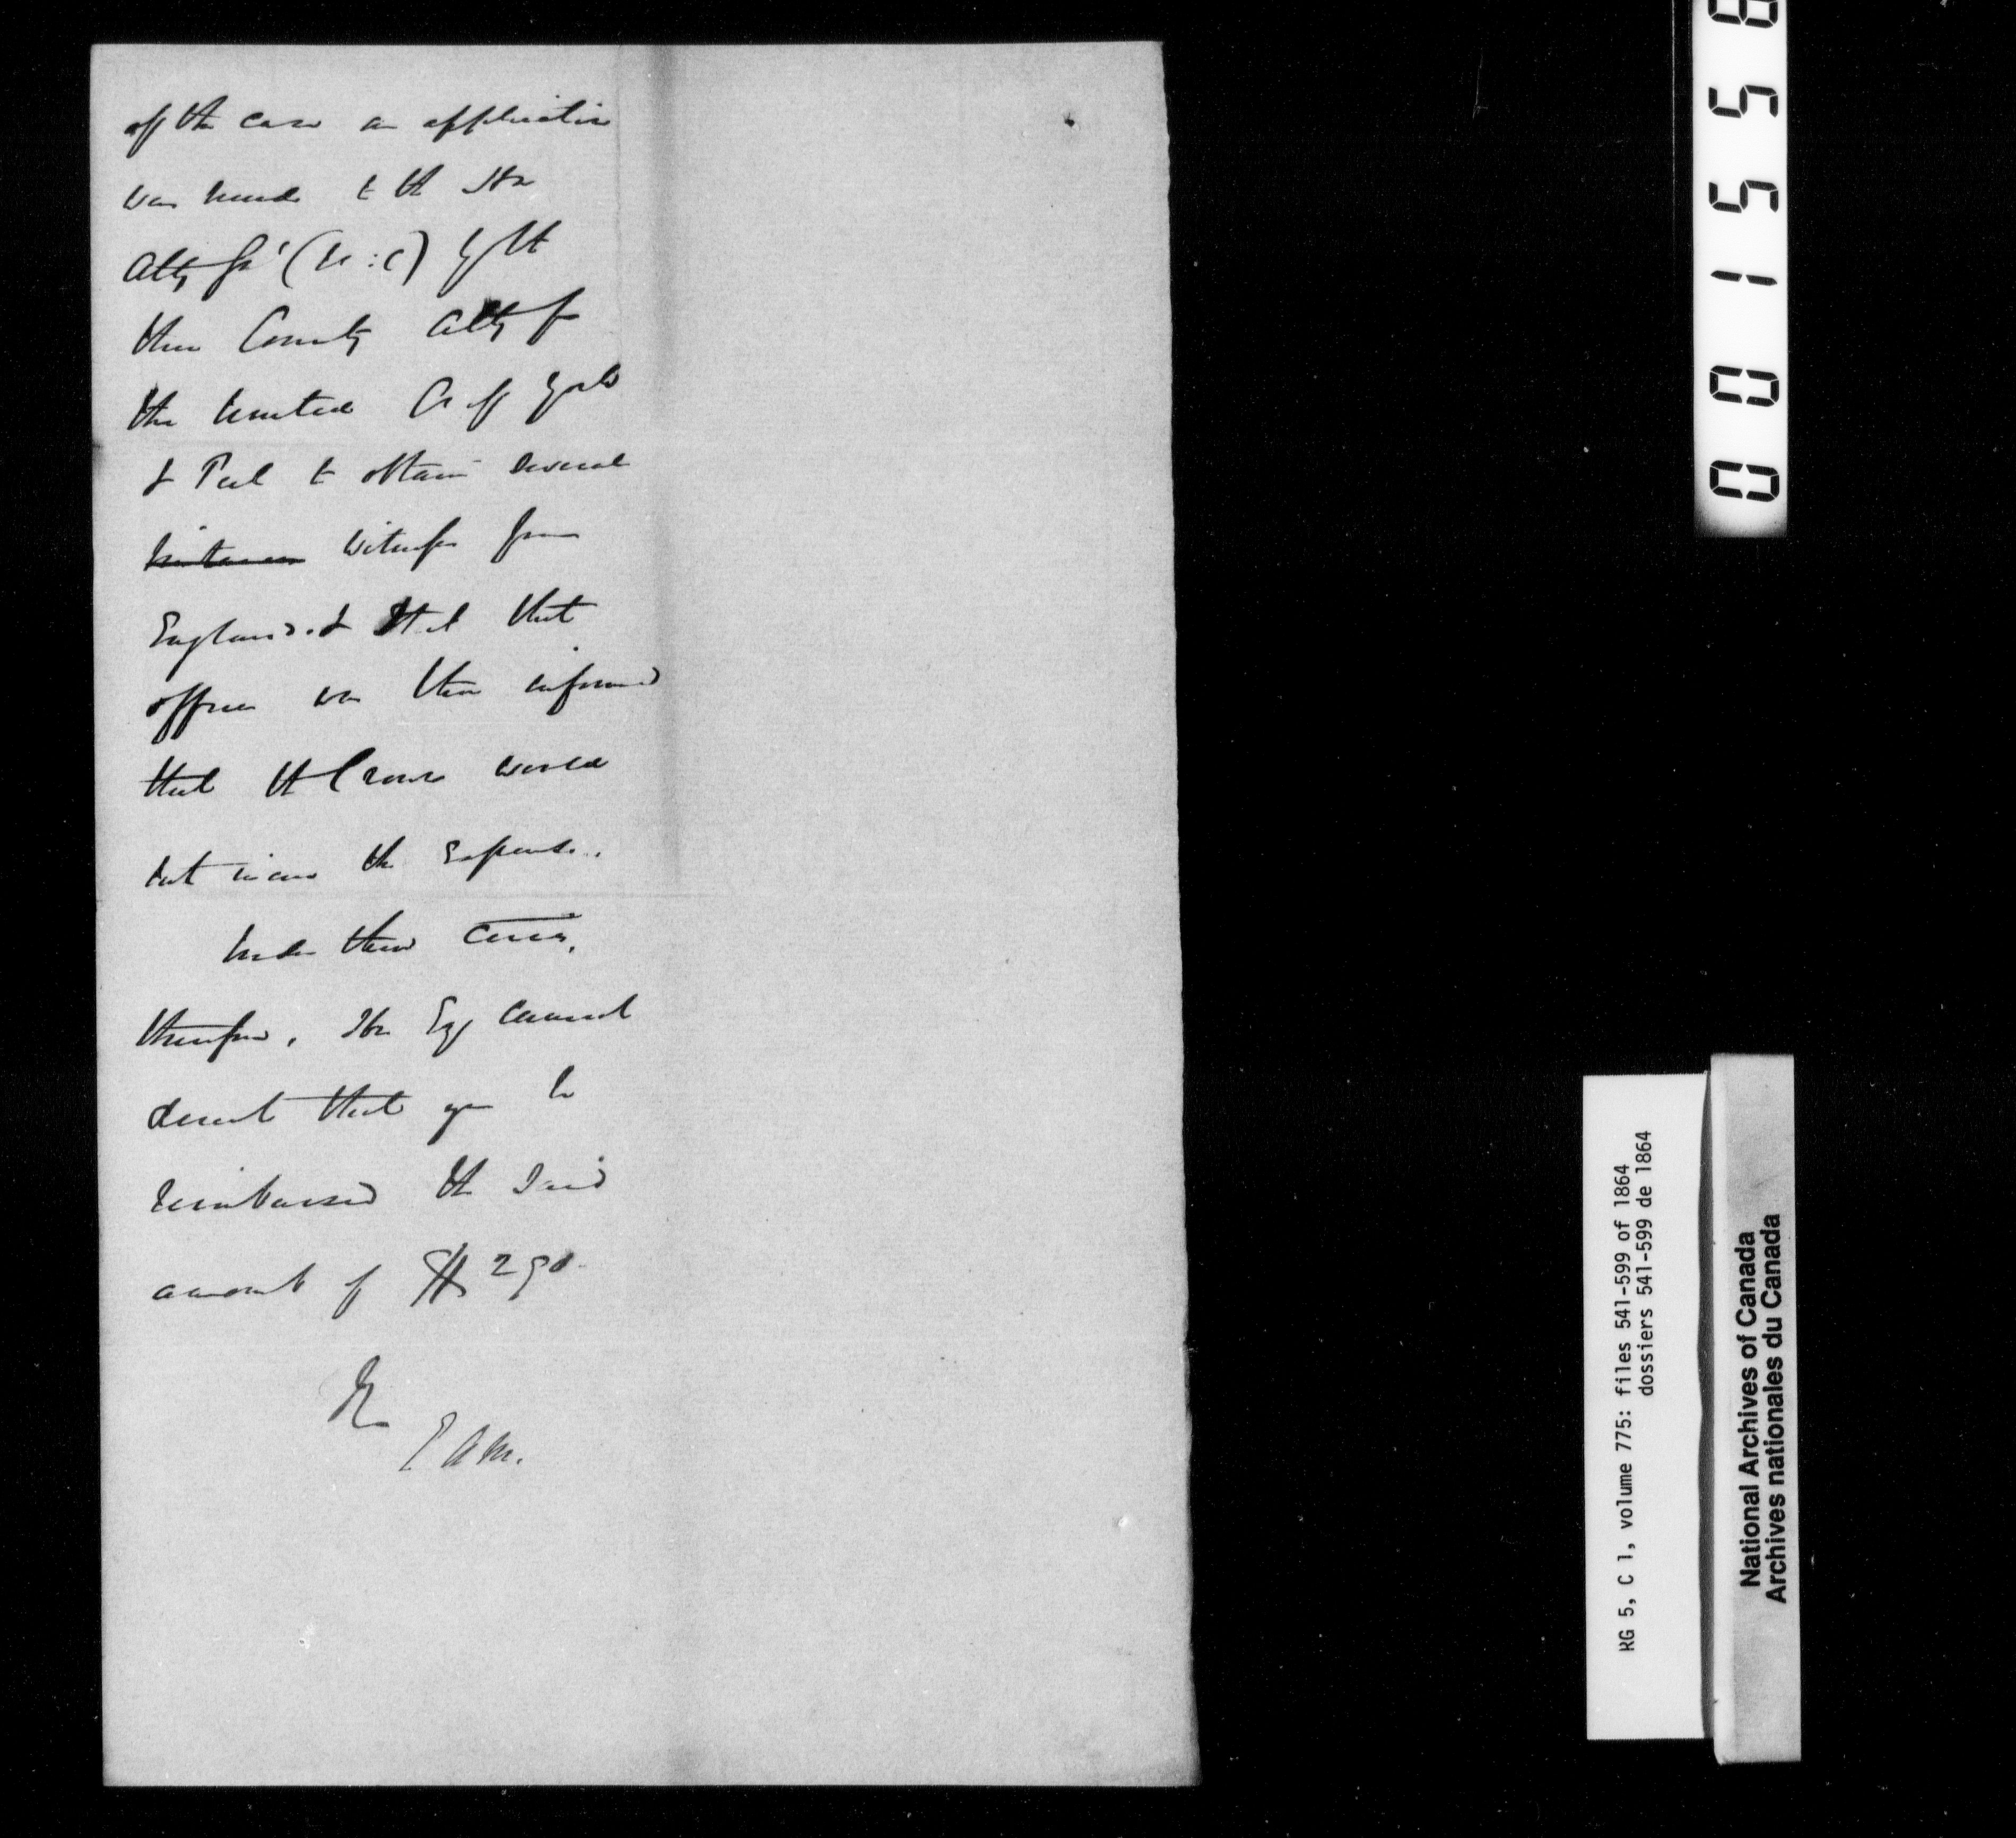 of the case an application
was made to the Hon
Atty Gl (U:C) by the
then County Atty for
the United Cs of York
& Peel to obtain several
witnesses from
England. & that that
officer was then informed
that the Crown would
not incur the expense.
Under these circes,
therefore, His Exy cannot
direct that you be
reimbursed the said
amount of $250.
E A M.
00155 8
RG 5, C 1, volume 775: files 541-599 of 1864
dossiers 541-599 de 1864
National Archives of Canada
Archives nationales du Canada